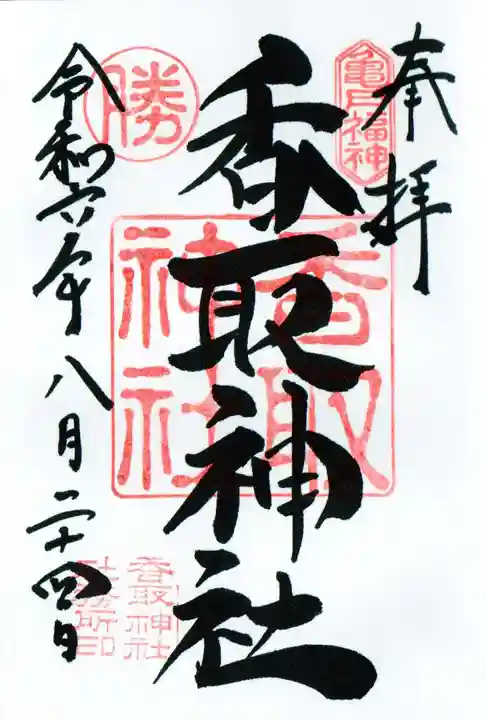 奉拝
亀戸福神
香取神社
香取
神社
勝
令和六年八月二十四日
香取神社
社務所印